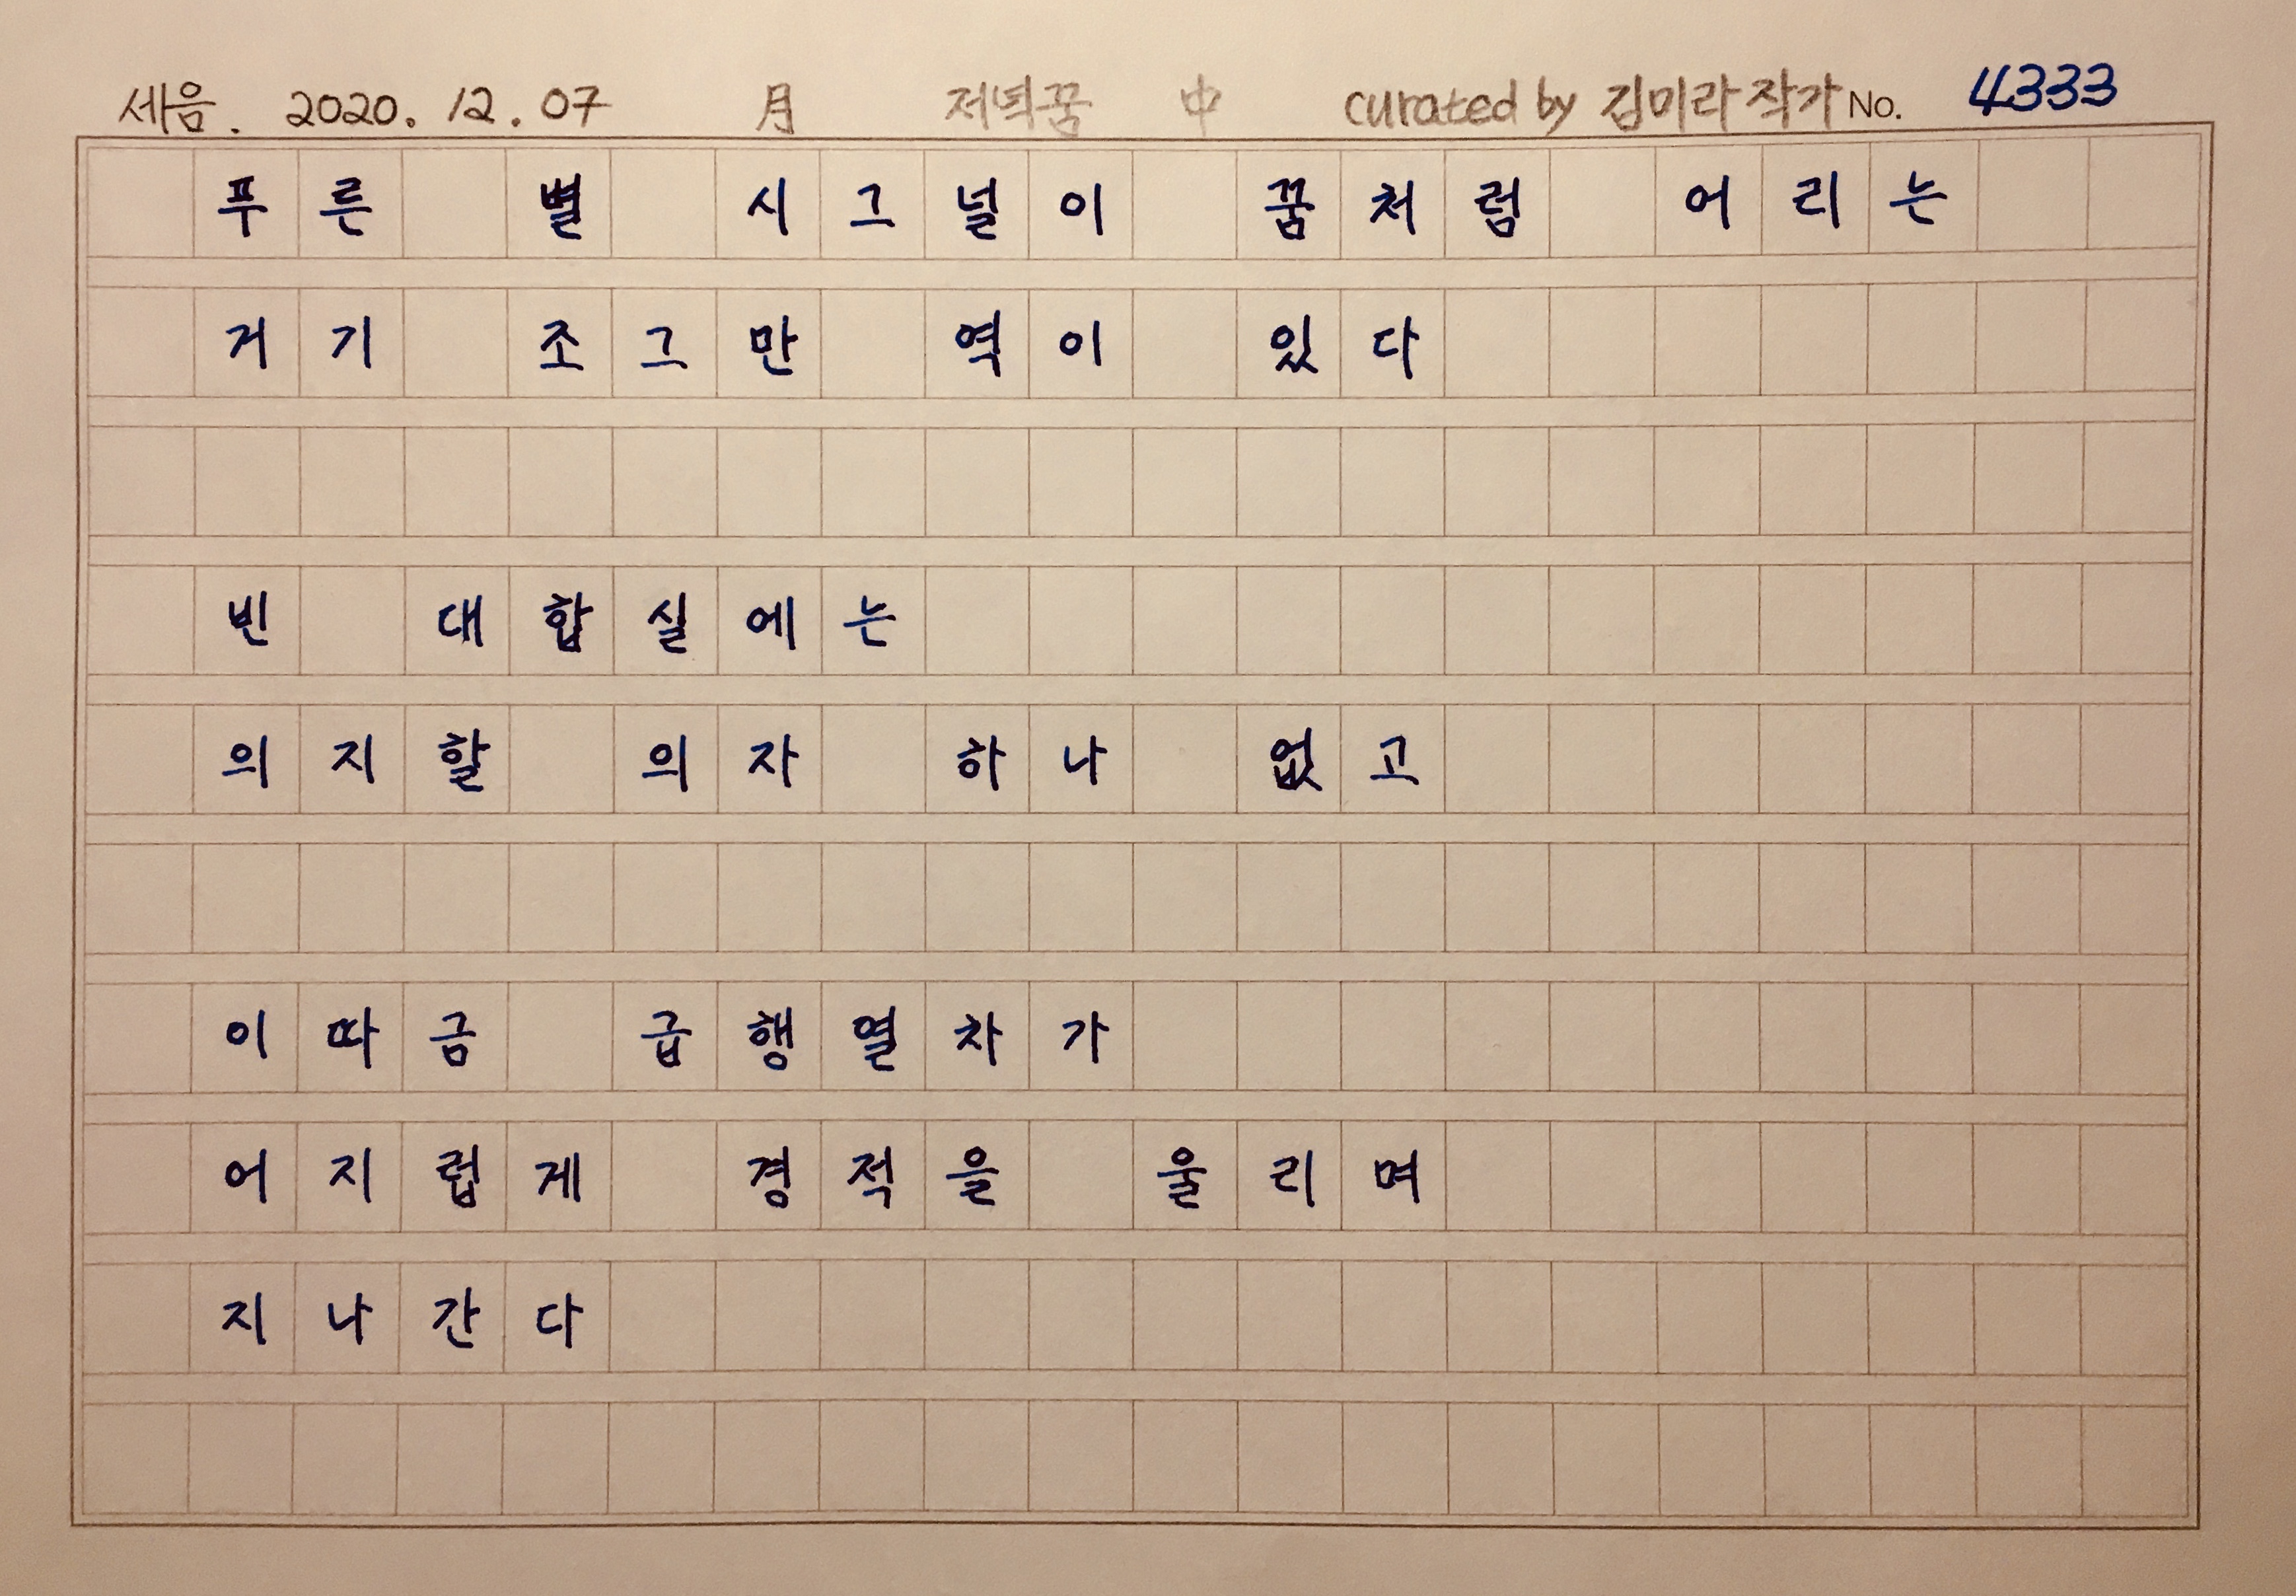 세음. 2020. 12. 07 月 저녁꿈 中 curated by 김미라 작가 No. 4333
푸른 별 시그널이 꿈처럼 어리는
거기 조그만 역이 있다
빈 대합실에는
의지할 의자 하나 없고
이따금 급행열차가
어지럽게 경적을 울리며
지나간다